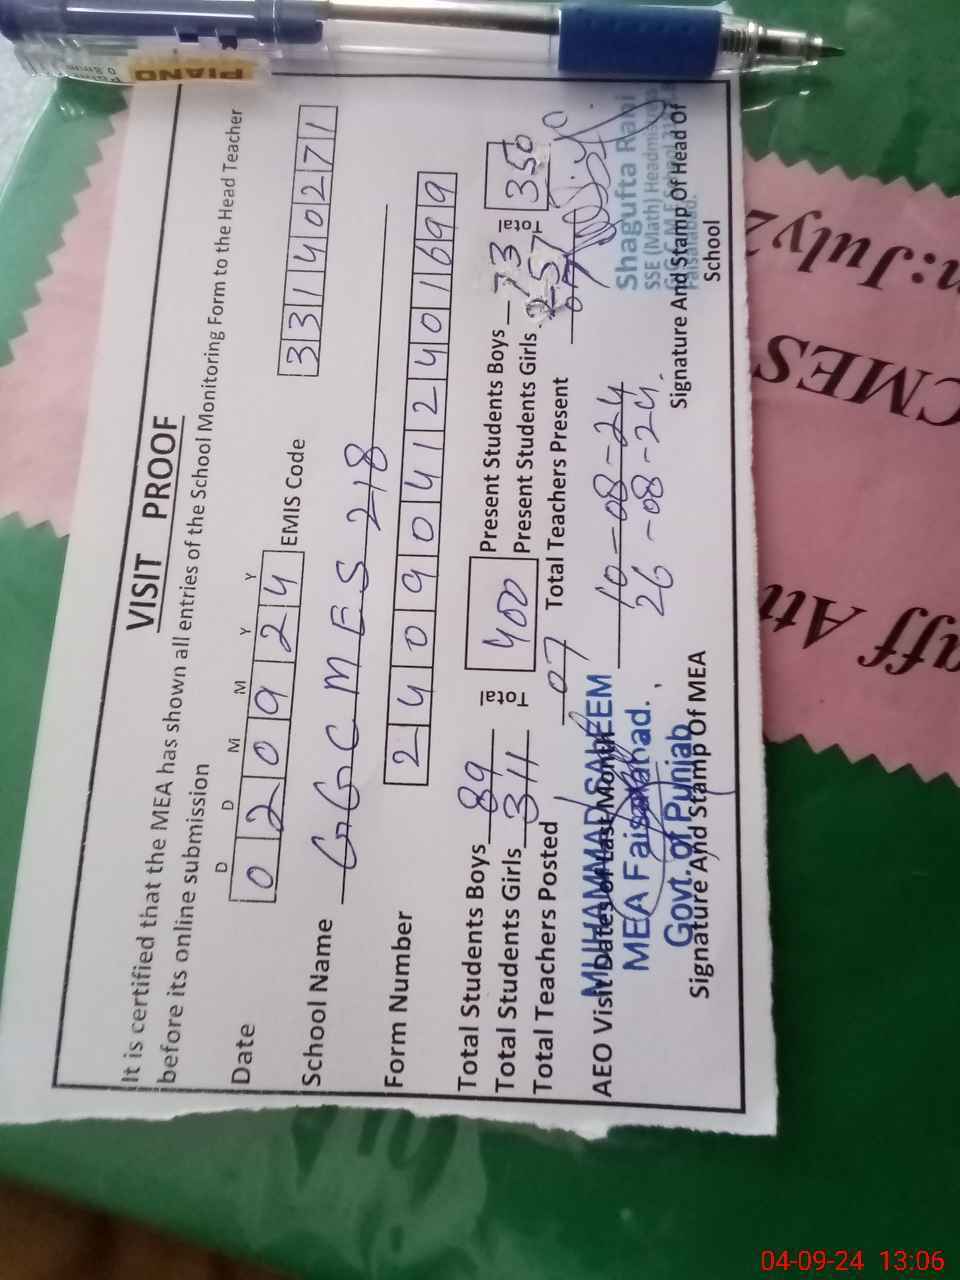 VISIT PROOF
It is certified that the MEA has shown all entries of the School Monitoring Form to the Head Teacher
before its online submission
D D M M Y Y
Date 0 2 0 9 2 4 EMIS Code 3 3 1 4 0 2 7 1
School Name GGCMES 218
Form Number 2 4 0 9 0 4 1 2 4 0 1 6 9 9
Total Students Boys 89 Total 400 Present Students Boys 73 Total 350
Total Students Girls 311 Present Students Girls
Total Teachers Posted 07 Total Teachers Present 07
AEO Visit Dates of Last Month 10-08-24
26-08-24
MUHAMMAD SALEEM
MEA Faisalabad.
Govt. of Punjab
Signature And Stamp Of MEA
Shagufta Rani
SSE (Math) Headmistress
Faisalabad.
Signature And Stamp Of Head Of
School
PIANO
CMES
04-09-24 13:06